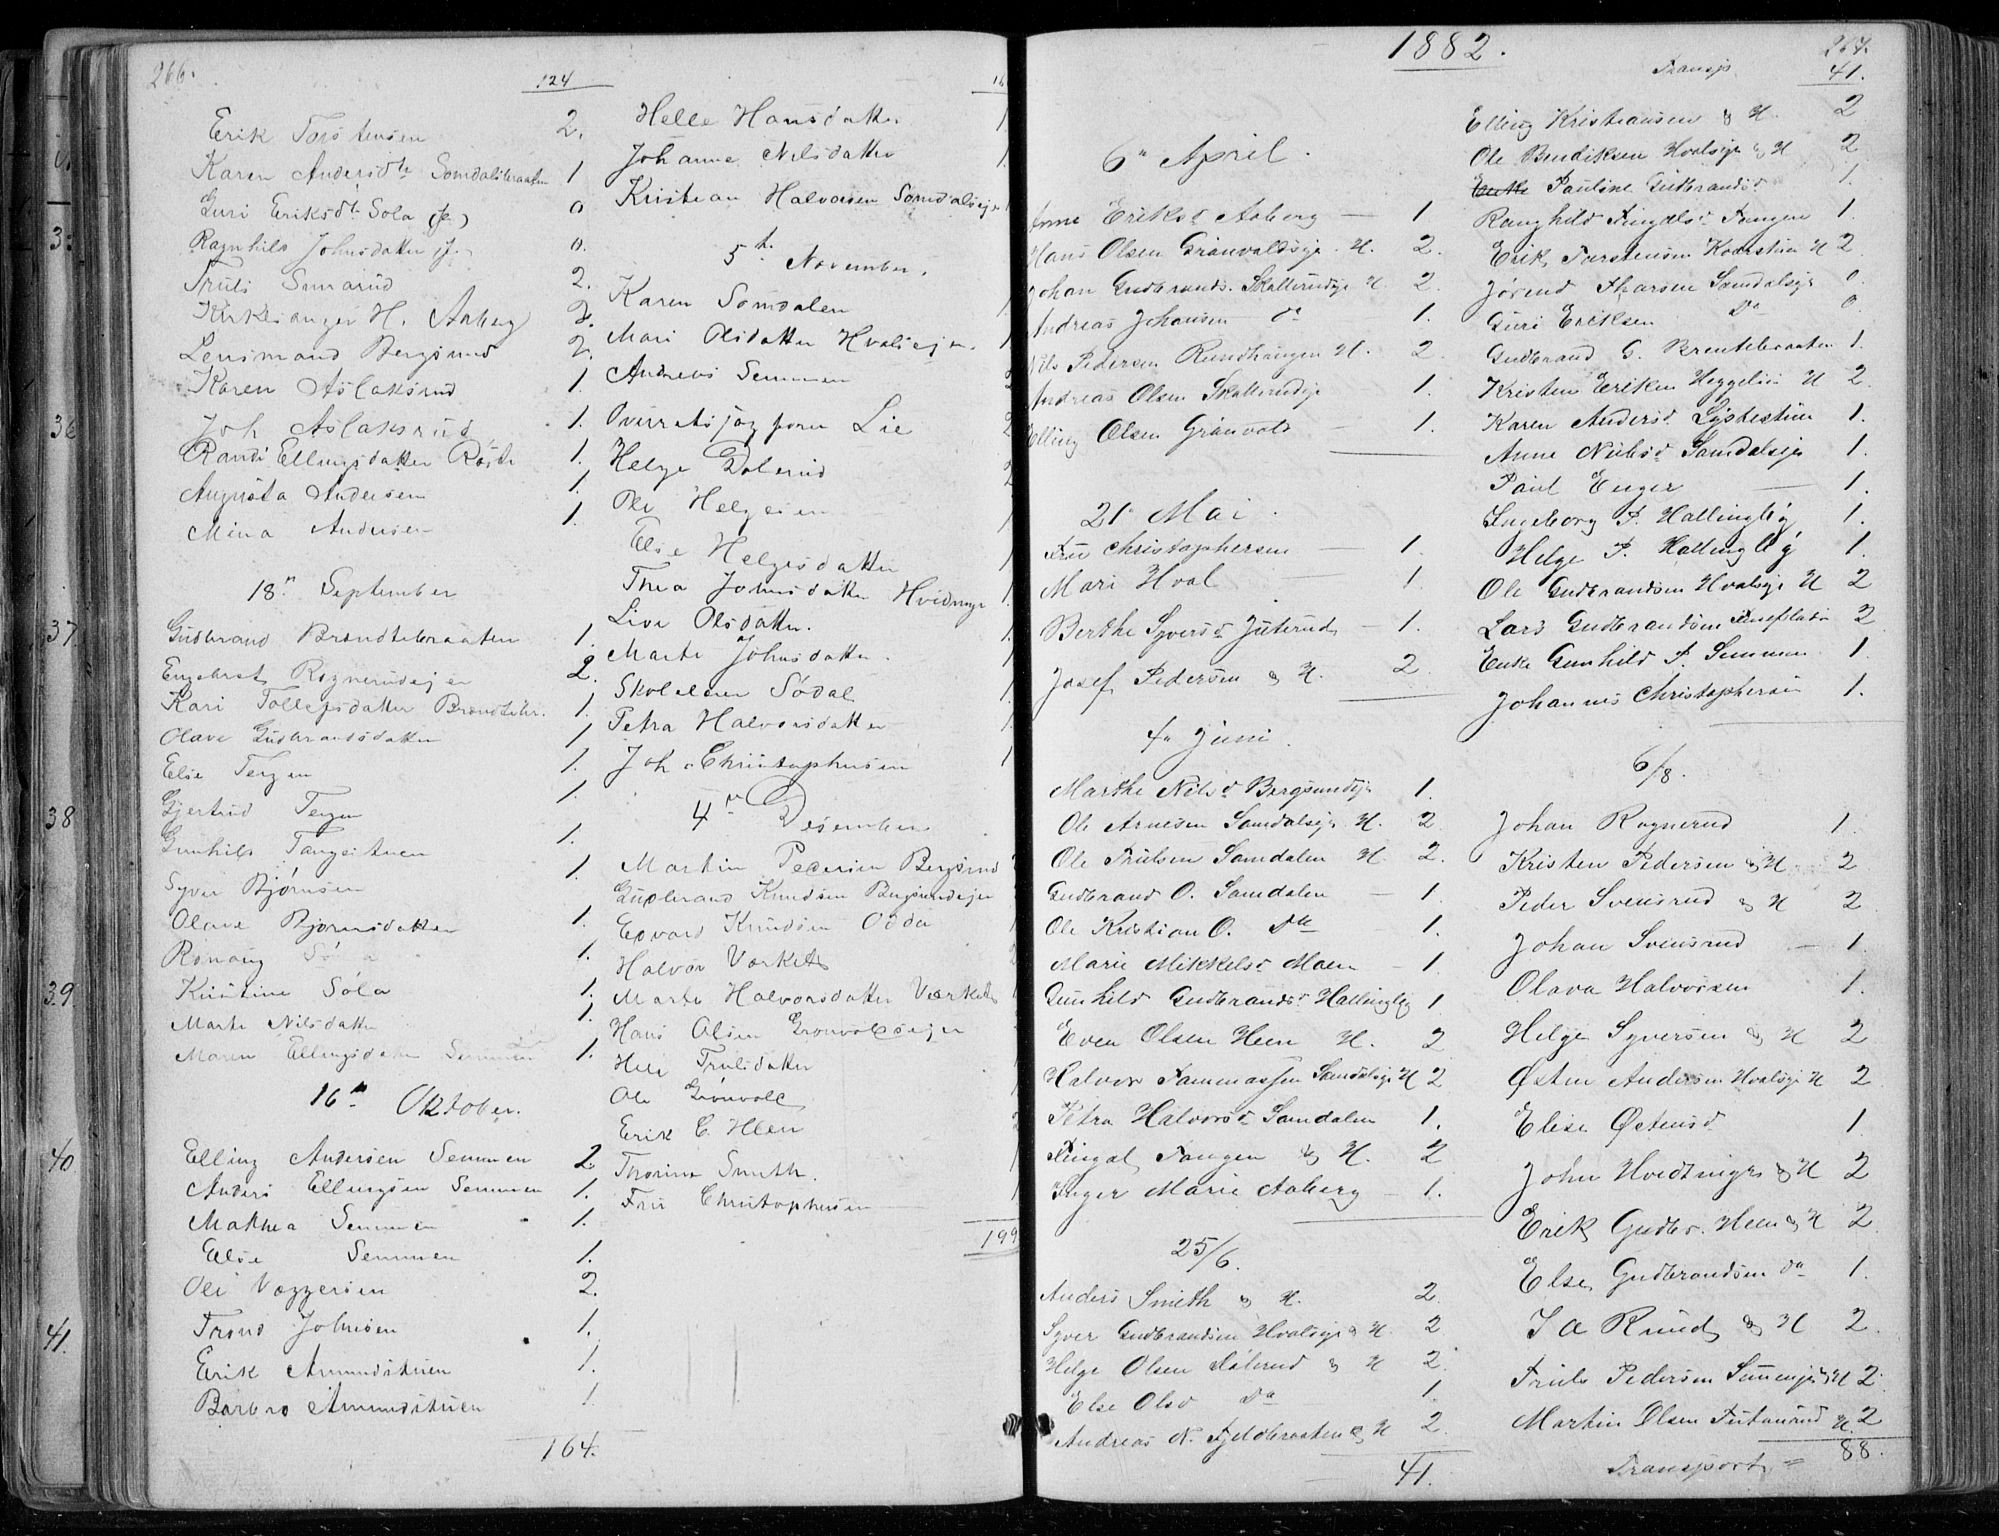 266.
124
Erik Torstensen 2.
Karen Andersdtr Somdalsbraaten 1
Guri Eriksdtr Sola (f.) 0
Ragnhild Johnsdatter (f. 0.
Truls Semmerud 2.
Kirkesanger H. Aaberg 2.
Lensmand Bergsund 2.
Karen Aslaksrud 1.
Joh Aslaksrud 1.
Randi Ellingsdatter 1.
Augusta Andersen 1.
Mina Andersen 1.
18n September
Gudbrand Brendtebraaten 1.
Engebret Rognerudejer 2.
Kari Tollefsdatter Brendtebr. 1.
Olave Gudbrandsdatter 1
Else Tergen 1.
Gjertrud Tergen 1.
Gunhild Tangestuen 1.
Syver Bjørnsen 1.
Olave Bjørnsdatter 1.
Rønnaug 1.
Kristine Sola 1.
Marte Nilsdatter 1.
Maren Ellingsdatter Semmen 1.
16n Oktober.
Elling Andersen Semmen 2
Anders Ellingsen Semmen 1.
Mathea Semmen 1.
Else Semmen 1.
Ole Væggersen 2.
Trond Johnsen 1.
Erik Amundstuen 1.
Barbro Amundstuen 1.
164.
16
Helle Hansdatter 1
Johanne Nilsdatter 1.
Kristian Halvorsen Somdalsejer 1
5te November.
Karen Somdalen 1
Mari Olsdatter Hvalsejer. 1
Andreas Semmen
Overretssagfører Lie 2
Helge Dolerud 2
Ole Helgesen 1
Else Helgesdatter 1
Thea Johnsdatter Hvidinge 1.
Live Olsdatter. 1.
Marte Johnsdatter. 1
Skolelærer Sødal 1
Petra Halvorsdatter 1.
Joh. Christophersen 1
4n Desember
Martin Pedersen Bergsund
Gudbrand Knudsen Bergsundejer
Edvard Knudsen Odda
Halvor Værket
Marte Halvorsdatter Værket
Hans Olsen Grønvoldsejer
Heli Trulsdatter
Ole Grønvold
Erik C. Hen
Thorine Smith.
Fru Christophersen
199
1882.
6n April.
Anne Eriksd Aaberg — 1.
Hans Olsen Grønvoldseje. H. 2.
Johan Gudbrands. Skollerudeje H. 2.
Andreas Johansen do 1.
Nils Pedersen Rundhaugen H. 2.
Andreas Olsen Skollerudeje 1.
Elling Olsen Grønvold — 1.
21n Mai.
Fru Christophersen — 1.
Mari Hval — 1.
Berthe Syversd Juterud — 1.
Josef Pedersen & H. 2.
4n Juni.
Marthe Nilsd Bergsundeje 1.
Ole Arnesen Samdalseje H. 2
Ole Trulsen Samdalen H. 2.
Gudbrand O. Samdalen — 1.
Ole Kristian O. do 1.
Marie Mikkelsd Moen — 1.
Gunhild Gudbrandsd Hallingby 1
Even Olsen Heen H. 2
Halvor Tommassen Samdalseje H 2
Petra Halvorsd Samdalen 1.
Fingal Tangen & H. 2
Inger Marie Aaberg — 1.
25/6.
Anders Smeth & H. 2.
Syver Gudbrandsen Hvalseje & H. 2
Helge Olsen Dolerud & H 2.
Else Olsd do 1.
Andreas N. Fjeldbraaten & H 2.
41.
267.
Transp 41.
Elling Kristiansen & H. 2
Ole Bendiksen Hvalseje & H 2
Enke Pauline Gudbrandsd 1.
Ranghild Fingalsd Tangen 1.
Erik Torstensen Kværstein H 2
Jørend Tharsen Samdalseje 0.
Guri Eriksen do 0.
Gudbrand G. Brentebraaten 1.
Kristen Eriksen Heggelien H 2.
Karen Andersd 1.
Anne Nielsd Samdalseje 1.
Paul Enger — 1.
Ingeborg P. Hallingby 1.
Helge P. Hallingby 1.
Ole Gudbrandsen Hvalseje H 2
Lars Gudbrandsen 2
Enke Gunhild P. Semmen 1.
Johannes Christophersen 1.
6/8.
Johan Rognerud 1.
Kristen Pedersen & H. 2
Peder Svensrud & H 2.
Johan Svensrud — 1.
Olava Halvorsen 1.
Helge Syversen & H 2
Østen Andersen Hvalseje H 2
Elise Østensd 1.
John Hvidtinge & H 2
Erik Gudbr. Heen & H 2.
Else Gudbrandsen do 1.
J A Ruud & H 2.
Truls Pedersen & H 2.
Martin Olsen H. 2
Transport = 88.